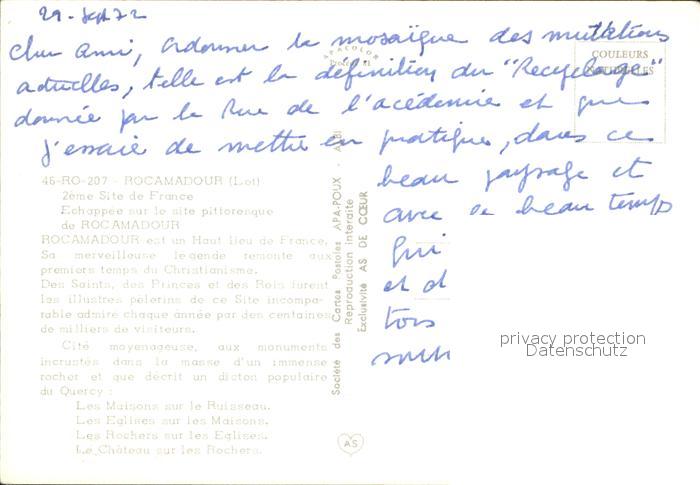 29 - Sept 72
Cher Ami, ordonner la mosaïque des mutations
actuelles, telle est la définition du "Recyclage"
donnée par la Rue de l'académie et que
j'essaie de mettre en pratique, dans ce
beau paysage et
avec ce beau temps
qui
et d
COULEURS
NATURELLES
46-RO-207 - ROCAMADOUR (Lot)
2ème Site de France
Echappée sur le site pittoresque
de ROCAMADOUR
ROCAMADOUR est un Haut lieu de France.
Sa merveilleuse légende remonte aux
premiers temps du Christianisme.
Des Saints, des Princes et des Rois furent
les illustres pèlerins de ce Site incompa-
rable admiré chaque année par des centaines
de milliers de visiteurs.
Cité moyenageuse, aux monuments
incrustés dans la masse d'un immense
rocher et que décrit un dicton populaire
du Quercy :
Les Maisons sur le Ruisseau.
Les Eglises sur les Maisons.
Les Rochers sur les Eglises.
Le Château sur les Rochers.
Société des Cartes Postales APA-POUX - ALBI
Reproduction interdite
Exclusivité AS DE CŒUR
AS
privacy protection
Datenschutz